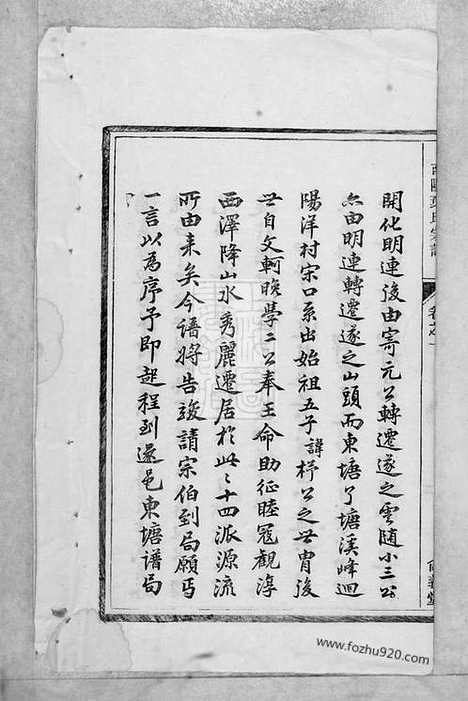 開化明連後由寄元公轉遷遂之雲隨小三公
亦由明連轉遷遂之山頭而東塘了塘溪峰迴
陽洋村宗口系出始祖五子諱杼公之世胄後
世自文軻晚學二公奉王命助征睦寇觀淳
西澤降山水秀麗遷居於此之十四派源流
所由来矣今譜將告竣請宗伯到局願丐
一言以為序予即起程到遂邑東塘谱局
卷之一
www.fozhu920.com